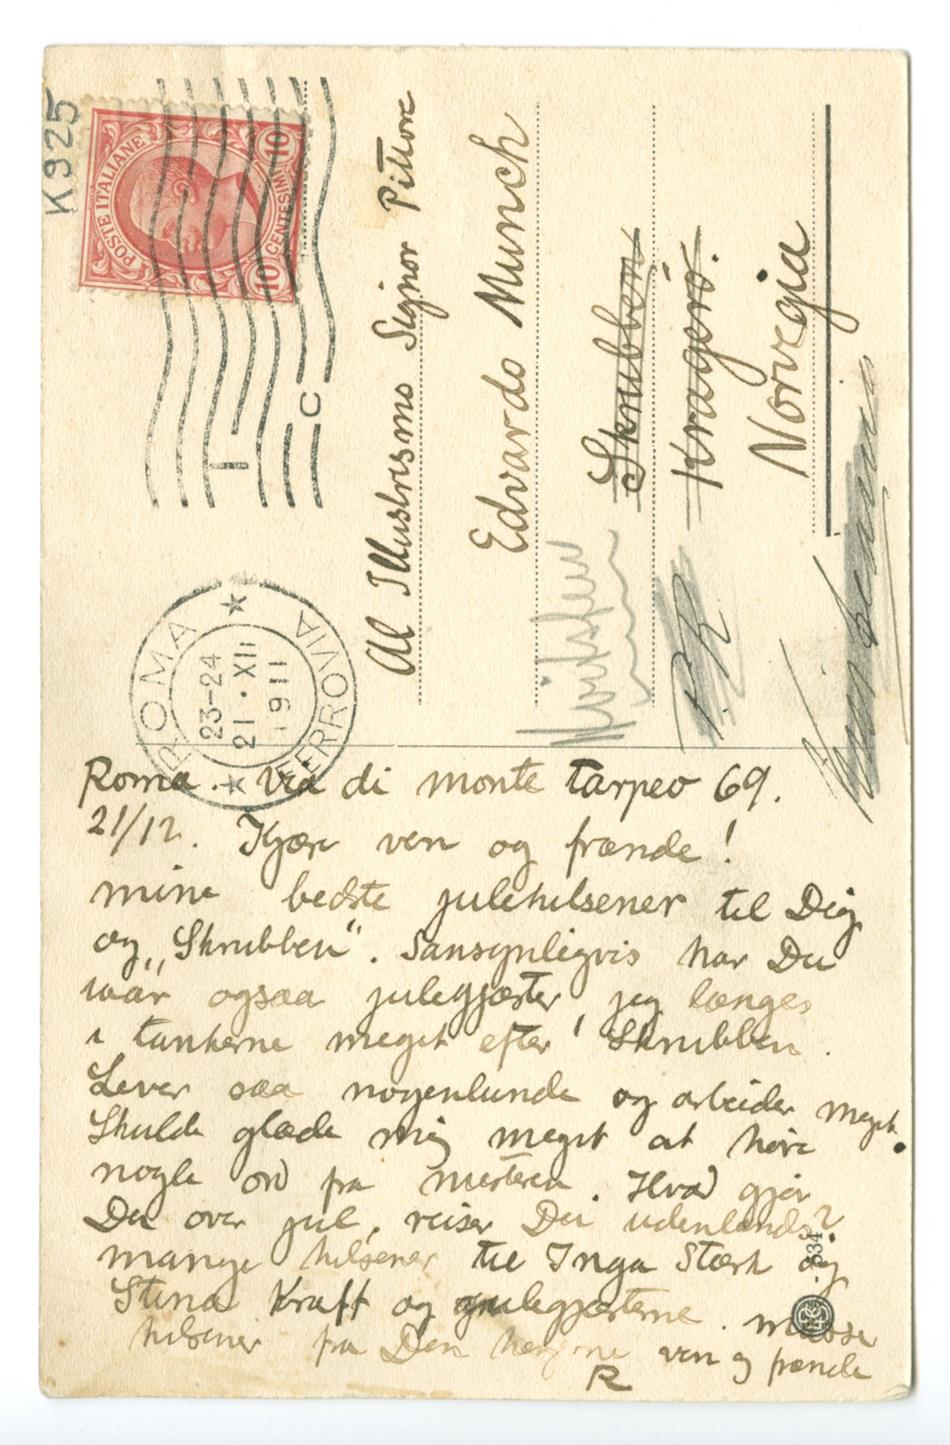 K925
POSTE ITALIANE
10 CENTESIMI 10
ROMA
23-24
21 · XII
1911
FERROVIA
Al Illustrismo Signor Pittore
Edvardo Munch
Skrubben
Kragerö.
Norvegia
Hvitsten
P.R.
Roma. Via di monte tarpeo 69.
21/12. Kjære ven og frænde!
mine bedste julehilsener til Dig
og „Skrubben“. Sansynligvis har Du
iaar ogsaa julegjæster, jeg længes
i tankerne meget efter Skrubben.
Lever saa nogenlunde og arbeider meget.
Skulde glæde mig meget at høre
nogle ord fra mesteren. Hvad gjør
Du over jul, reiser Du udenlands?
mange hilsener til Inga Stærk og
Stina Kraft og julegjæsterne. masse
hilsener fra Din ven og frænde
R
334